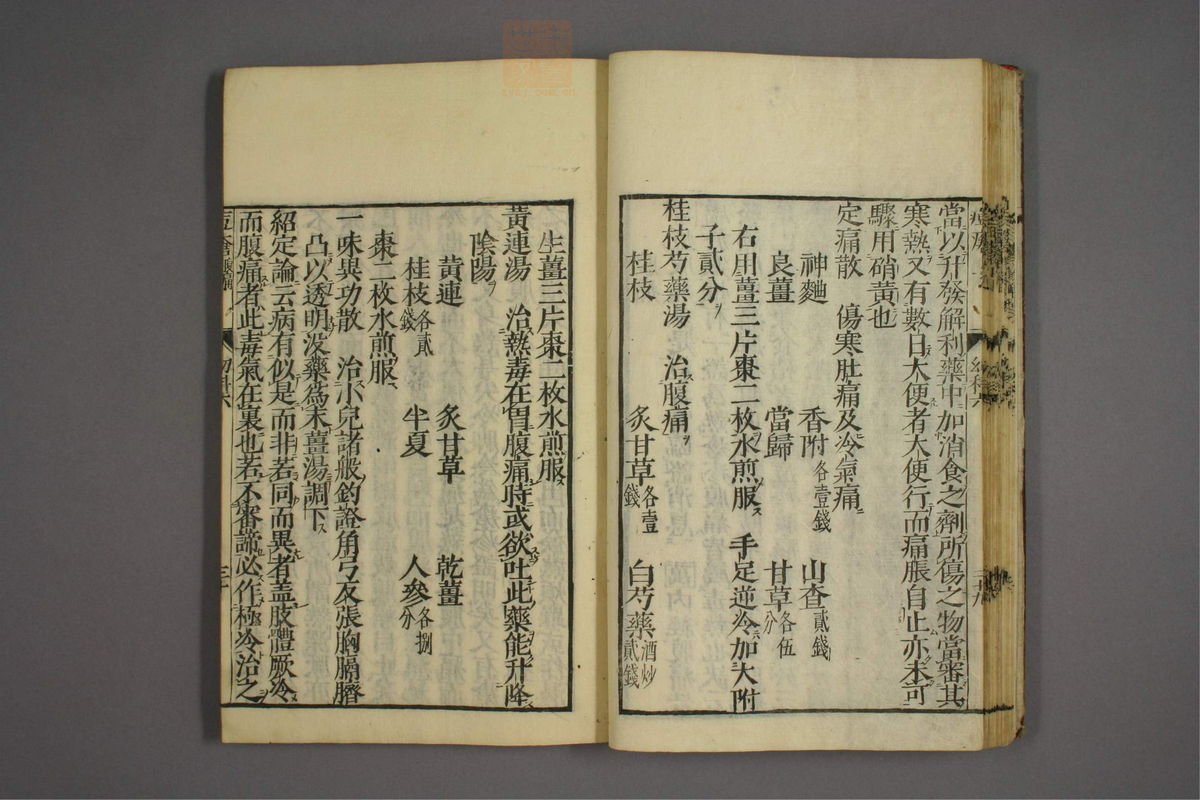 當以升發解利藥中加消食之劑所傷之物當審其
寒熱又有數日大便者大便行而痛脹自止亦未可
驟用硝黃也
定痛散 傷寒肚痛及冷氣痛
神麯 香附各壹錢 山查貳錢
良薑 當歸 甘草各伍分
右用薑三片棗二枚水煎服 手足逆冷加大附
子貳分
桂枝芍藥湯 治腹痛
桂枝 炙甘草各壹錢 白芍藥酒炒貳錢
生薑三片棗二枚水煎服
黃連湯 治熱毒在胃腹痛時或欲吐此藥能升降
陰陽
黃連 炙甘草 乾薑
桂枝各貳錢 半夏 人參各捌分
棗二枚水煎服
一味異功散 治小兒諸般釣證角弓反張胸膈臍
凸以透明沒藥爲末薑湯調下
紹定論云病有似是而非若同而異者盖肢體厥冷
而腹痛者此毒氣在裏也若不審諦必作極冷治之
幼科六
三十